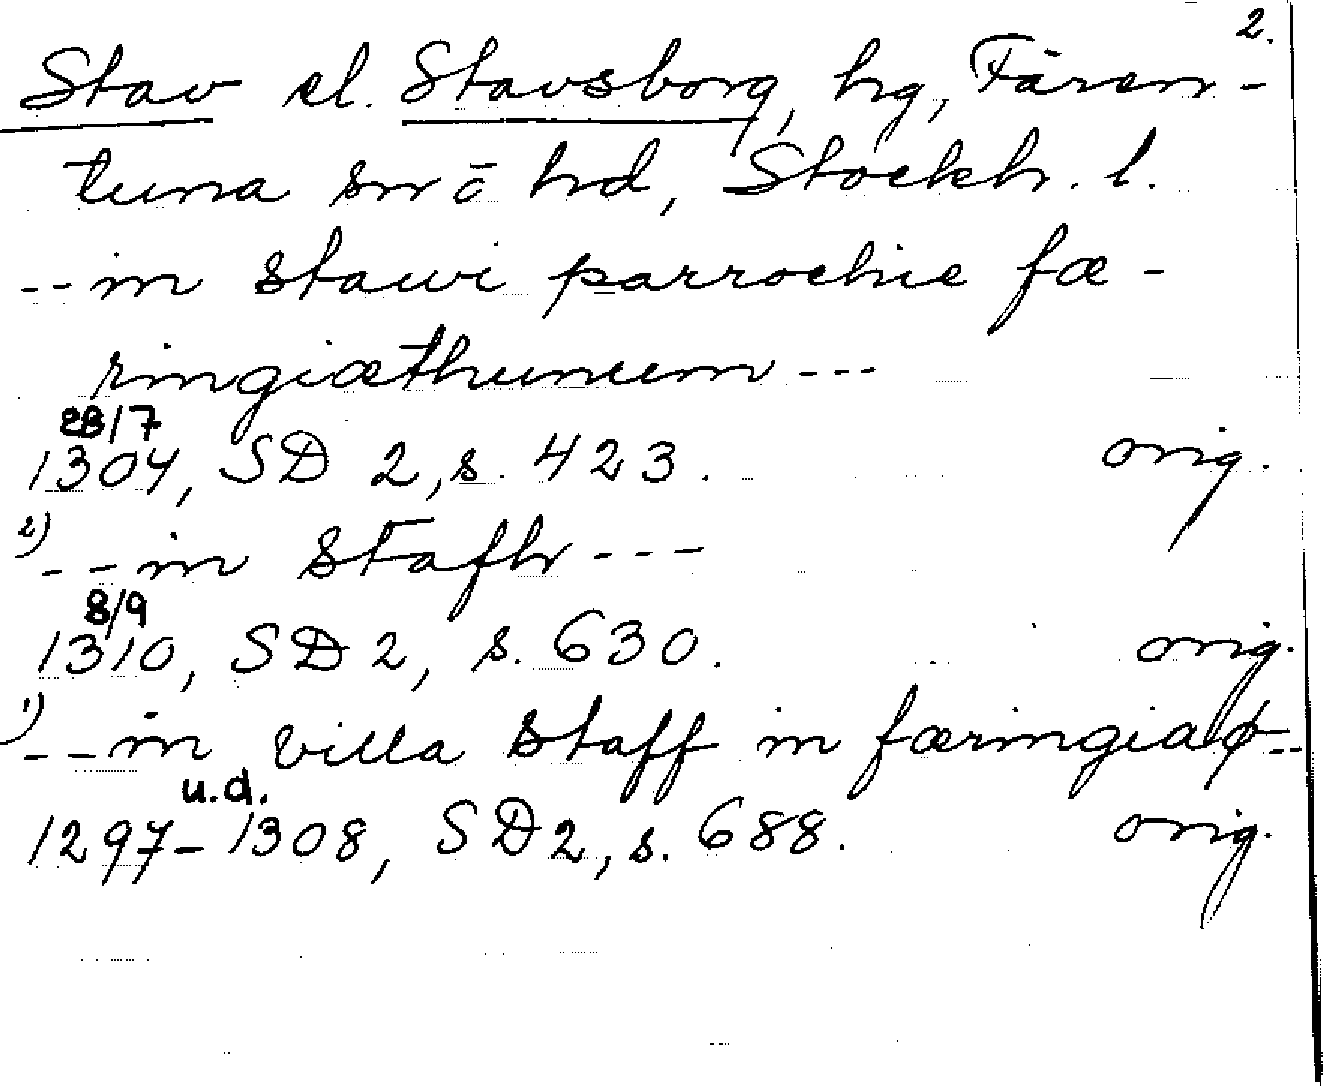 2.
Stav el. Stavsborg, hg, Fären-
tuna sn o hd, Stockh. l.
--in stawi parrochie fæ-
ringiæthunum ---
28/7
1304, SD 2, s. 423. orig.
2) --in stafh ---
8/9
1310, SD 2, s. 630. orig.
1) --in villa staff in færingia --
u.d.
1297-1308, SD 2, s. 688. orig.